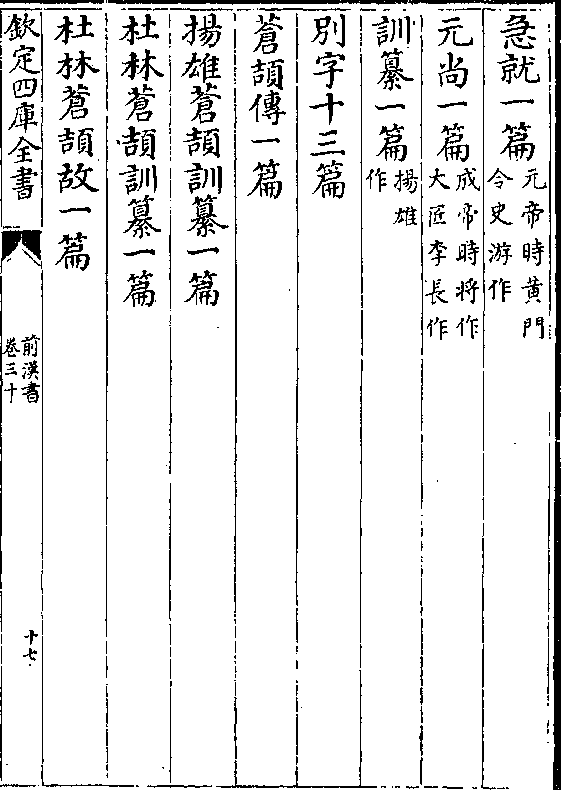 急就一篇元帝時黃門令史游作
元尚一篇成帝時將作大匠李長作
訓纂一篇揚雄作
別字十三篇
蒼頡傳一篇
揚雄蒼頡訓纂一篇
杜林蒼頡訓纂一篇
杜林蒼頡故一篇
欽定四庫全書
前漢書
卷三十
十七